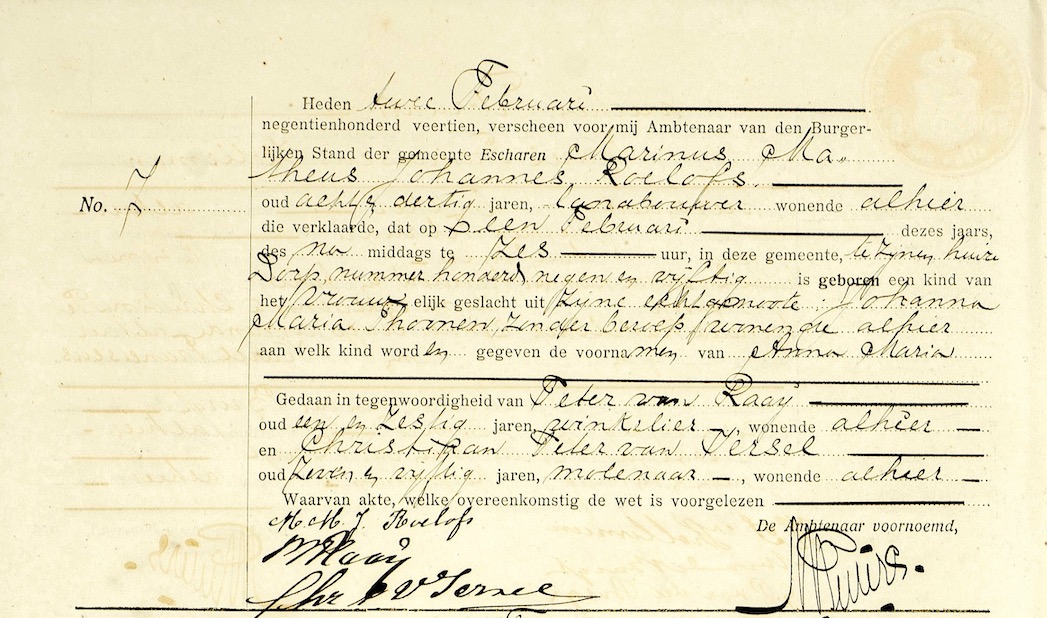 Heden twee Februari
negentienhonderd veertien, verscheen voor mij Ambtenaar van den Burger-
lijken Stand der gemeente Escharen Marinus Ma-
theus Johannes Roelofs
No. 7
oud acht en dertig jaren, landbouwer wonende alhier
die verklaarde, dat op een Februari dezes jaars,
des na middags te zes uur, in deze gemeente, te zijnen huize
Dorp nummer honderd negen en vijftig is geboren een kind van
het vrouwelijk geslacht uit zijne echtgenoote: Johanna
Maria Thoonen, zonder beroep, wonende alhier
aan welk kind worden gegeven de voornamen van Anna Maria
Gedaan in tegenwoordigheid van Peter van Raaij
oud een en zestig jaren, winkelier, wonende alhier
en Christiaan Peter van Tersel
oud zeven en vijftig jaren, molenaar, wonende alhier
Waarvan akte, welke overeenkomstig de wet is voorgelezen
M. M. J. Roelofs
De Ambtenaar voornoemd,